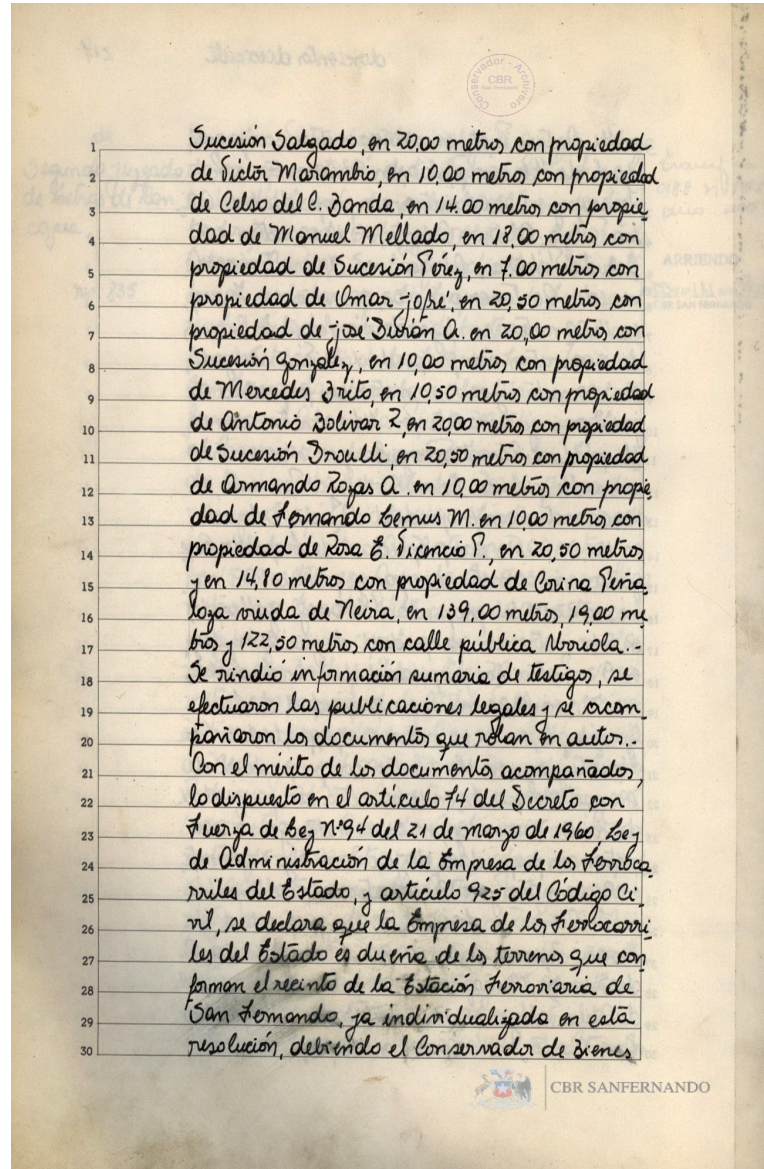 Conservador - Archivero
CBR
San Fernando
1 Sucesión Salgado, en 20,00 metros con propiedad
2 de Víctor Marambio, en 10,00 metros con propiedad
3 de Celso del C. Banda, en 14.00 metros con propie_
4 dad de Manuel Mellado, en 18,00 metros con
5 propiedad de Sucesión Pérez, en 7.00 metros con
6 propiedad de Omar Jofré, en 20,50 metros con
7 propiedad de José Durán A. en 20,00 metros con
8 Sucesión González, en 10,00 metros con propiedad
9 de Mercedes Brito, en 10,50 metros con propiedad
10 de Antonio Bolívar Z, en 20,00 metros con propiedad
11 de Sucesión Broulli, en 20,50 metros con propiedad
12 de Armando Rozas A. en 10,00 metros con propie_
13 dad de Fernando Lemus M. en 10,00 metros con
14 propiedad de Rosa E. Vicencio P., en 20,50 metros
15 y en 14,80 metros con propiedad de Corina Peña_
16 loza viuda de Neira, en 139,00 metros, 19,00 me_
17 tros y 122,50 metros con calle pública .-
18 Se rindió información sumaria de testigos, se
19 efectuaron las publicaciones legales y se acom_
20 pañaron los documentos que rolan en autos.-
21 Con el mérito de los documentos acompañados,
22 lo dispuesto en el artículo 74 del Decreto con
23 Fuerza de Ley N°94 del 21 de marzo de 1960, Ley
24 de Administración de la Empresa de los Ferroca_
25 rriles del Estado, y artículo 925 del Código Ci_
26 vil, se declara que la Empresa de los Ferrocarri_
27 les del Estado es dueña de los terrenos que con_
28 forman el recinto de la Estación Ferroviaria de
29 San Fernando, ya individualizada en esta
30 resolución, debiendo el Conservador de Bienes
CBR SANFERNANDO